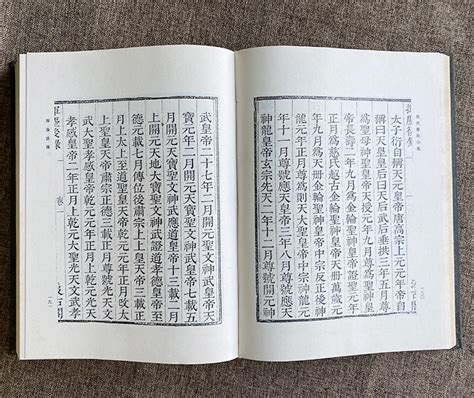 太子衍自稱天元皇帝唐高宗上元元年帝自
稱曰天皇皇后曰天后武后垂拱三年五月
爲聖母神皇 年九月爲聖神皇帝
帝長壽二年九月爲金輪聖神皇帝
正月爲慈氏越古金輪聖神皇帝天冊萬歲元
年九月爲天冊金輪聖神皇帝中宗反正神龍元
年十一月尊號應天皇帝三年八月尊號應天
神龍皇帝玄宗先天二年十二月尊號開元神
武皇帝二十七年二月開元聖文神武皇帝天
寶元年二月開元天寶聖文神武皇帝七載五
月開元天寶聖文神武應道皇帝十三載二月
上開元天地大寶聖文神武證道孝德皇帝至
德元載七月傳位後肅宗上上皇天帝三載正
月上太上至道聖皇天帝乾元元年正月改太
武大聖孝感皇帝
孝感皇帝二年正月上乾元大聖光天文武孝
卷一
汲古閣